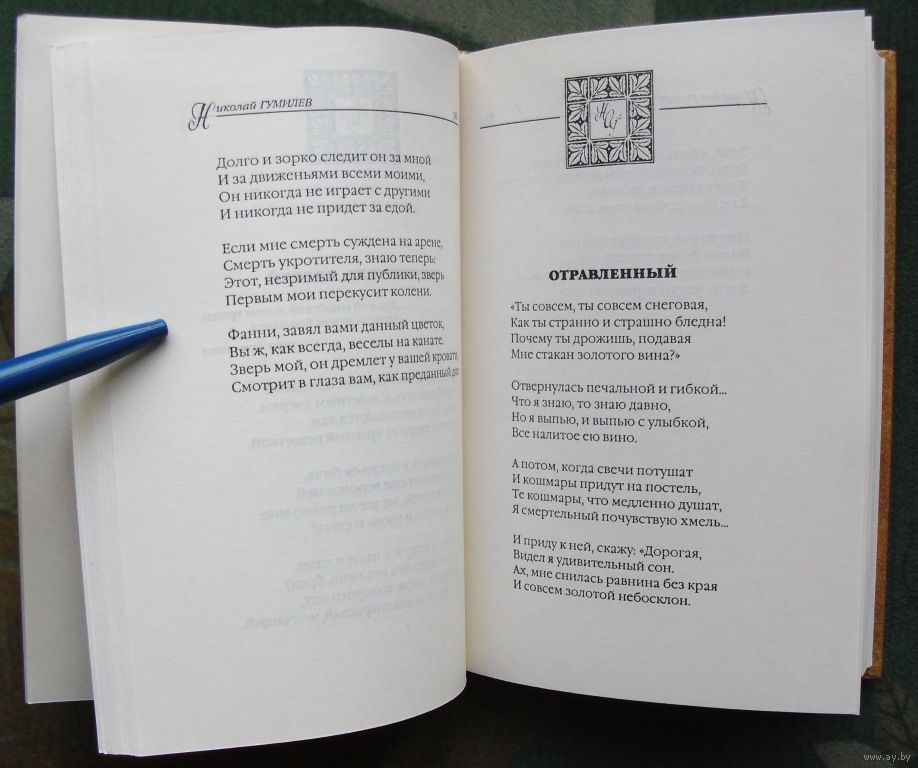 Николай ГУМИЛЕВ
Долго и зорко следит он за мной
И за движеньями всеми моими,
Он никогда не играет с другими
И никогда не придет за едой.
Если мне смерть суждена на арене,
Смерть укротителя, знаю теперь:
Этот, незримый для публики, зверь
Первым мои перекусит колени.
Фанни, завял вами данный цветок,
Вы ж, как всегда, веселы на канате.
Зверь мой, он дремлет у вашей кровати,
Смотрит в глаза вам, как преданный дог.
НГ
ОТРАВЛЕННЫЙ
«Ты совсем, ты совсем снеговая,
Как ты странно и страшно бледна!
Почему ты дрожишь, подавая
Мне стакан золотого вина?»
Отвернулась печальной и гибкой...
Что я знаю, то знаю давно,
Но я выпью, и выпью с улыбкой,
Все налитое ею вино.
А потом, когда свечи потушат
И кошмары придут на постель,
Те кошмары, что медленно душат,
Я смертельный почувствую хмель...
И приду к ней, скажу: «Дорогая,
Видел я удивительный сон.
Ах, мне снилась равнина без края
И совсем золотой небосклон.
www.ay.by